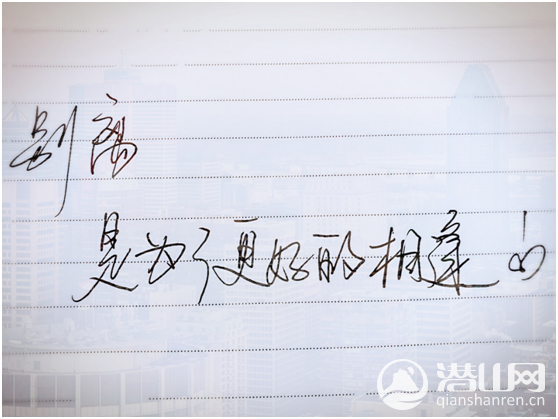 别离
是为了更好的相逢!
潜山网
qianshanren.cn